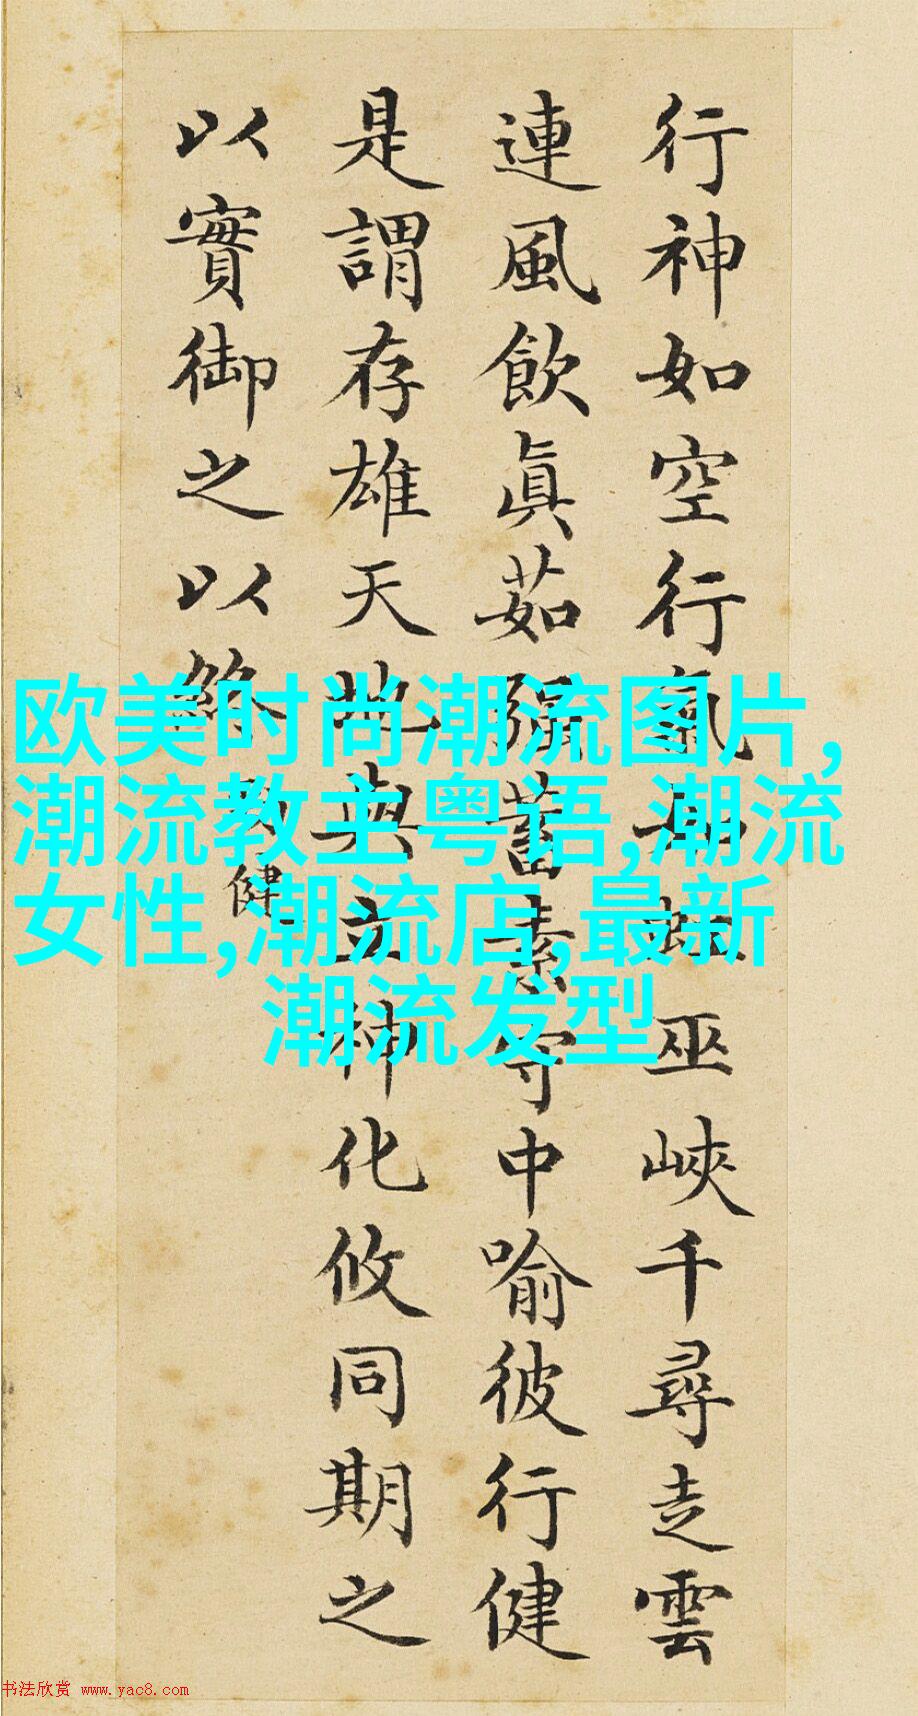 行神如空行氣如虹巫峽千尋走雲
連風飲眞茹強蓄素守中喻彼行健
是謂存雄天地與立神化攸同期之
以實御之以終
勁健
欧美时尚潮流图片,
潮流教主粤语,潮流
女性,潮流店,最新
潮流发型
书法欣赏 www.yac8.com